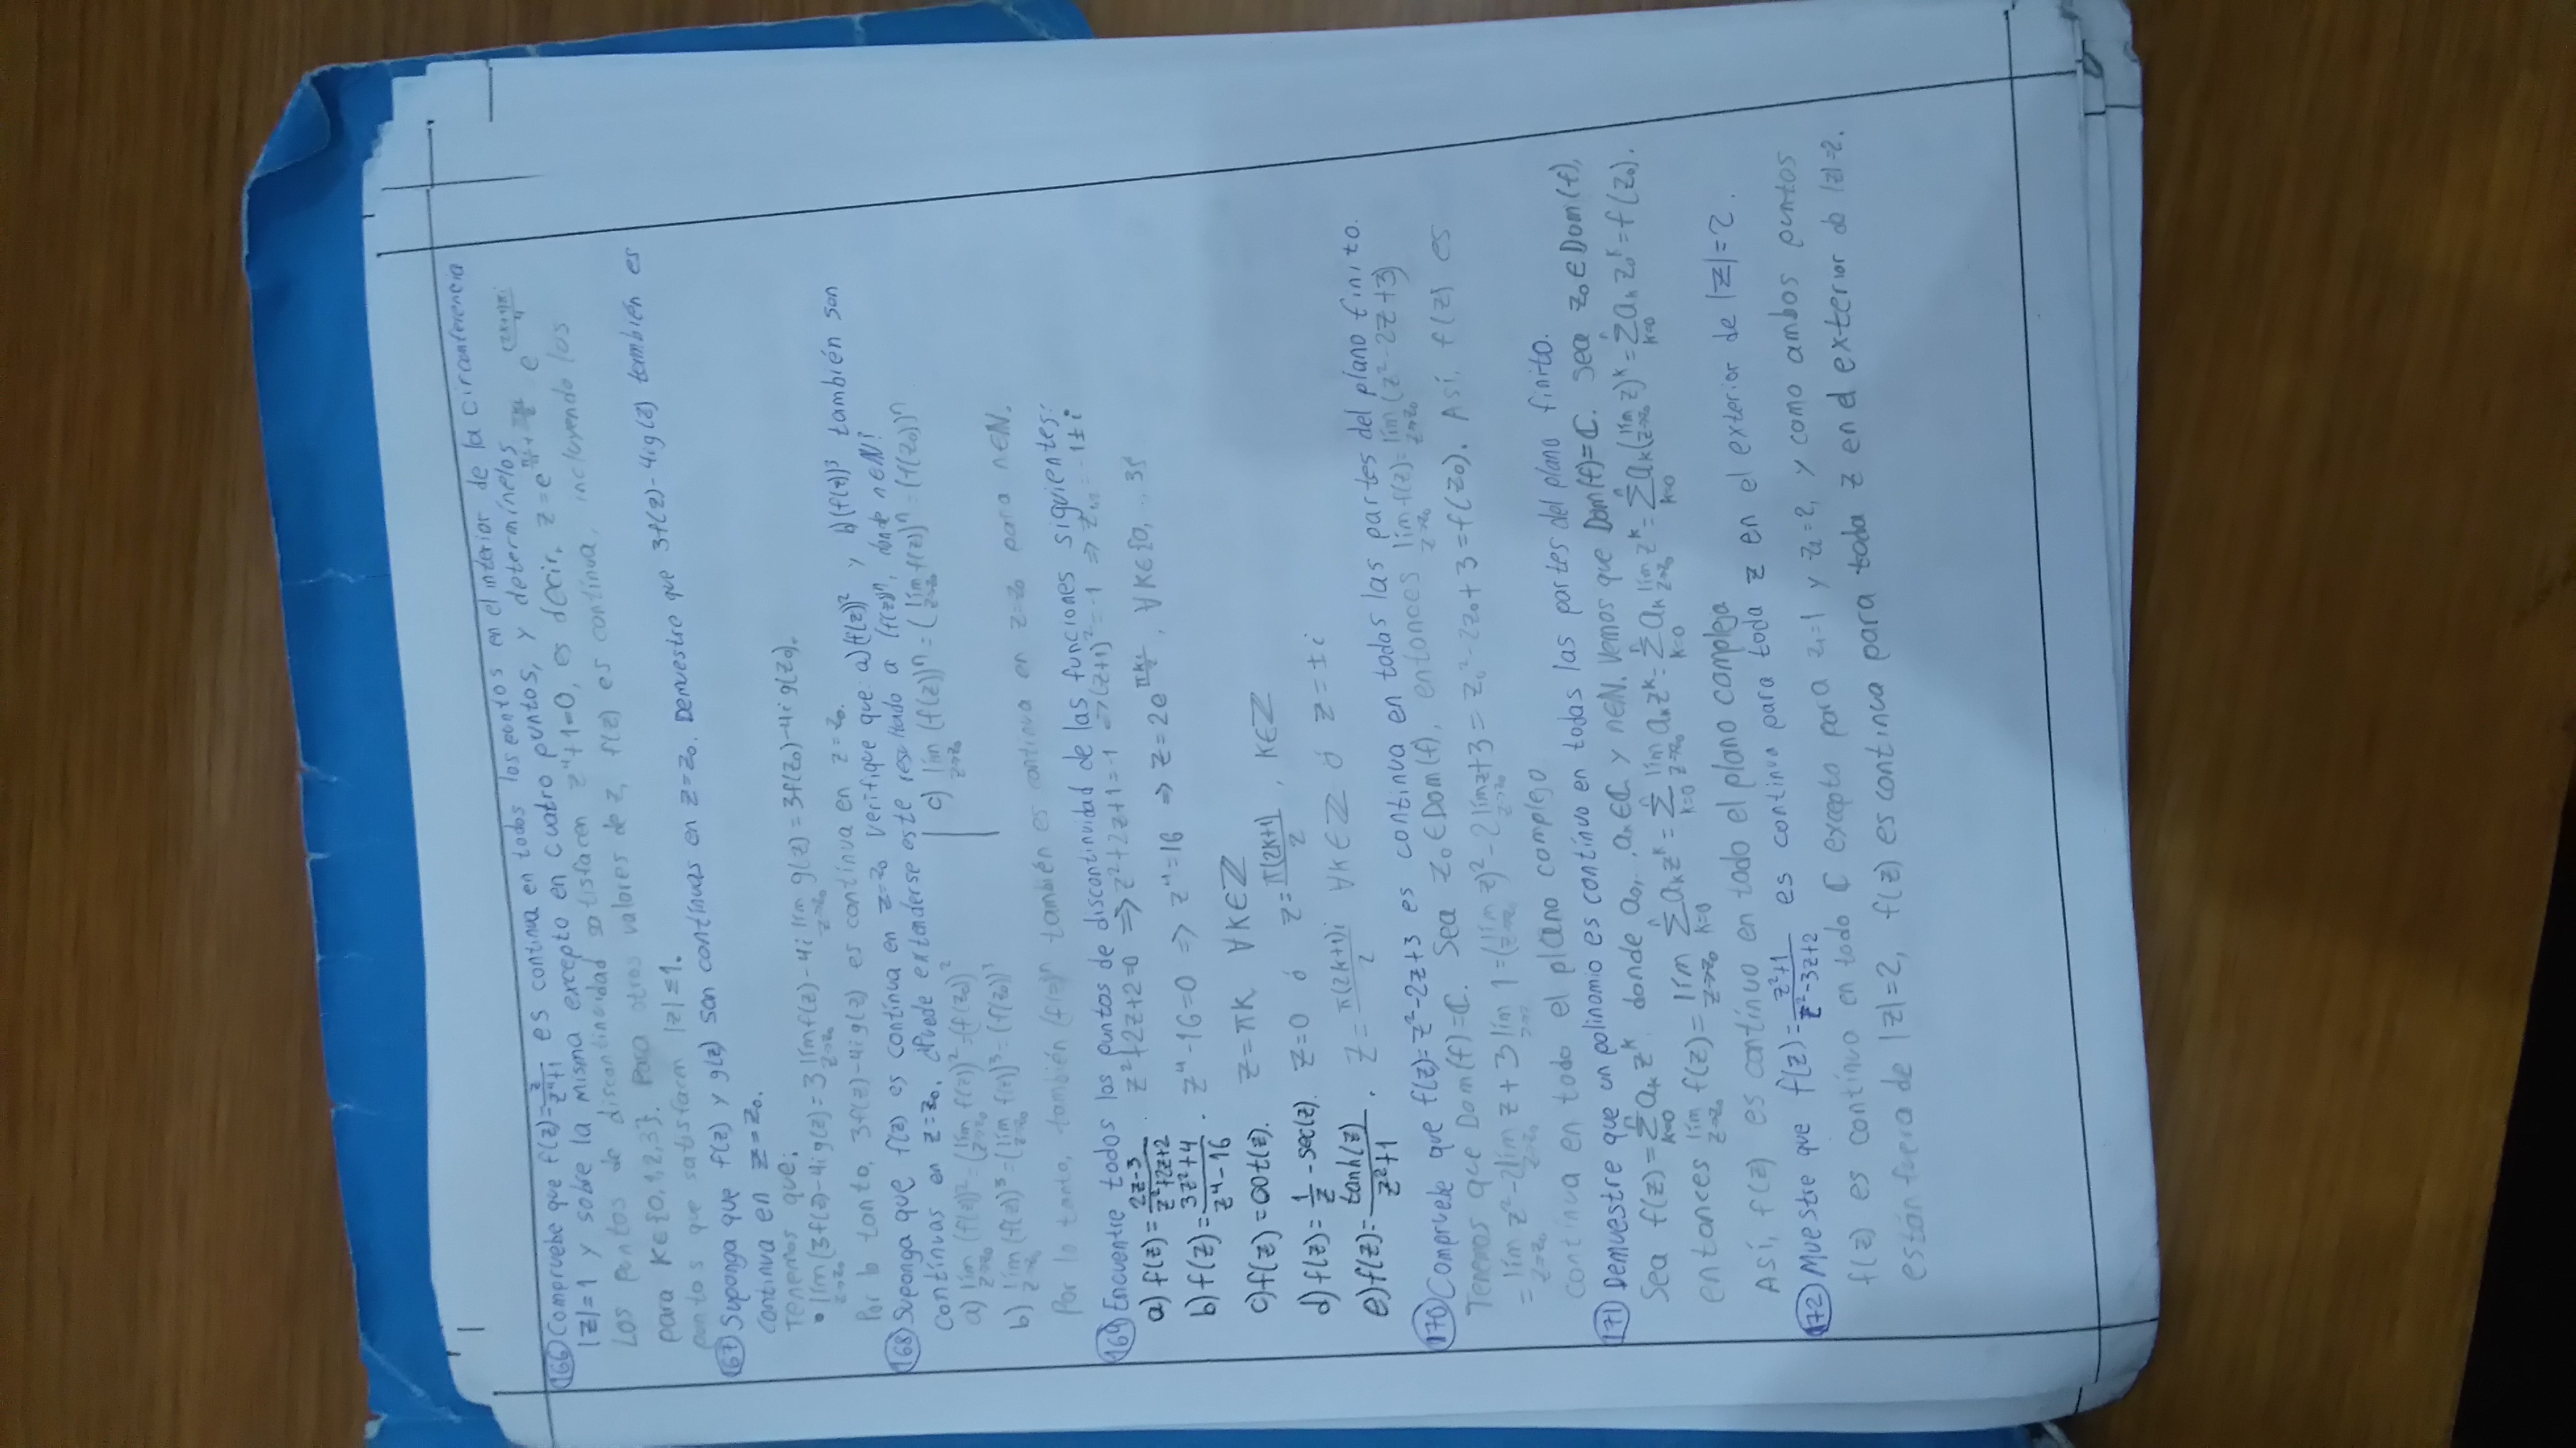 166 Compruebe que f(z)=z/(z⁴+1) es continua en todos los puntos en el interior de la circunferencia
|z|=1 y sobre la misma excepto en cuatro puntos, y determínelos
Los puntos de discontinuidad satisfacen z⁴+1=0, es decir, z=e^(πi/4 + 2πki/4) e^((2k+1)πi/4)
para k∈{0,1,2,3}. Para otros valores de z, f(z) es continua, incluyendo los
puntos que satisfacen |z|≤1.
167 Suponga que f(z) y g(z) son continuas en z=z₀. Demuestre que 3f(z)-4ig(z) también es
continua en z=z₀.
Tenemos que:
• lím_(z→z₀) (3f(z)-4ig(z)=3 lím_(z→z₀) f(z)-4i lím_(z→z₀) g(z)=3f(z₀)-4ig(z₀).
Por lo tanto, 3f(z)-4ig(z) es continua en z=z₀.
168 Suponga que f(z) es continua en z=z₀ Verifique que a)(f(z))² y b)(f(z))³ también son
continuas en z=z₀. ¿Puede extenderse este resultado a (f(z))ⁿ, donde n∈ℕ?
a) lím_(z→z₀) (f(z))²=(lím_(z→z₀) f(z))²=(f(z₀))²
b) lím_(z→z₀) (f(z))³=(lím_(z→z₀) f(z))³=(f(z₀))³
c) lím_(z→z₀) (f(z))ⁿ=(lím_(z→z₀) f(z))ⁿ=(f(z₀))ⁿ
Por lo tanto, también (f(z))ⁿ también es continua en z=z₀ para n∈ℕ.
169 Encuentre todos los puntos de discontinuidad de las funciones siguientes:
a) f(z)=(2z-3)/(z²+2z+2). z²+2z+2=0 ⇒ z²+2z+1=-1 ⇒ (z+1)²=-1 ⇒ z₁,₂=-1±i
b) f(z)=(3z²+4)/(z⁴-16). z⁴-16=0 ⇒ z⁴=16 ⇒ z=2e^(πki/2), ∀k∈{0,...3}
c) f(z)=cot(z). z=πk ∀k∈ℤ
d) f(z)=1/z-sec(z). z=0 ó z=π(2k+1)/2, k∈ℤ
e) f(z)=tanh(z)/(z²+1). z=π(2k+1)i/2 ∀k∈ℤ ó z=±i
170 Compruebe que f(z)=z²-2z+3 es continua en todas las partes del plano finito.
Tenemos que Dom(f)=ℂ. Sea z₀∈Dom(f), entonces lím_(z→z₀) f(z)=lím_(z→z₀) (z²-2z+3)
=lím_(z→z₀) z²-2lím_(z→z₀) z+3 lím_(z→z₀) 1=(lím_(z→z₀) z)²-2 lím_(z→z₀) z+3=z₀²-2z₀+3=f(z₀). Así, f(z) es
continua en todo el plano complejo
171 Demuestre que un polinomio es contínuo en todas las partes del plano finito.
Sea f(z)=∑_(k=0)^n aₖz^k, donde a₀,..,aₙ∈ℂ y n∈ℕ. Vemos que Dom(f)=ℂ. Sea z₀∈Dom(f),
entonces lím_(z→z₀) f(z)=lím_(z→z₀) ∑_(k=0)^n aₖz^k=∑_(k=0)^n lím_(z→z₀) aₖz^k=∑_(k=0)^n aₖ lím_(z→z₀) z^k=∑_(k=0)^n aₖ(lím_(z→z₀) z)^k=∑_(k=0)^n aₖz₀^k=f(z₀).
Así, f(z) es contínuo en todo el plano complejo
172 Muestre que f(z)=(z²+1)/(z²-3z+2) es continua para toda z en el exterior de |z|=2.
f(z) es contínua en todo ℂ excepto para z₁=1 y z₂=2, y como ambos puntos
están fuera de |z|=2, f(z) es continua para toda z en el exterior de |z|=2.